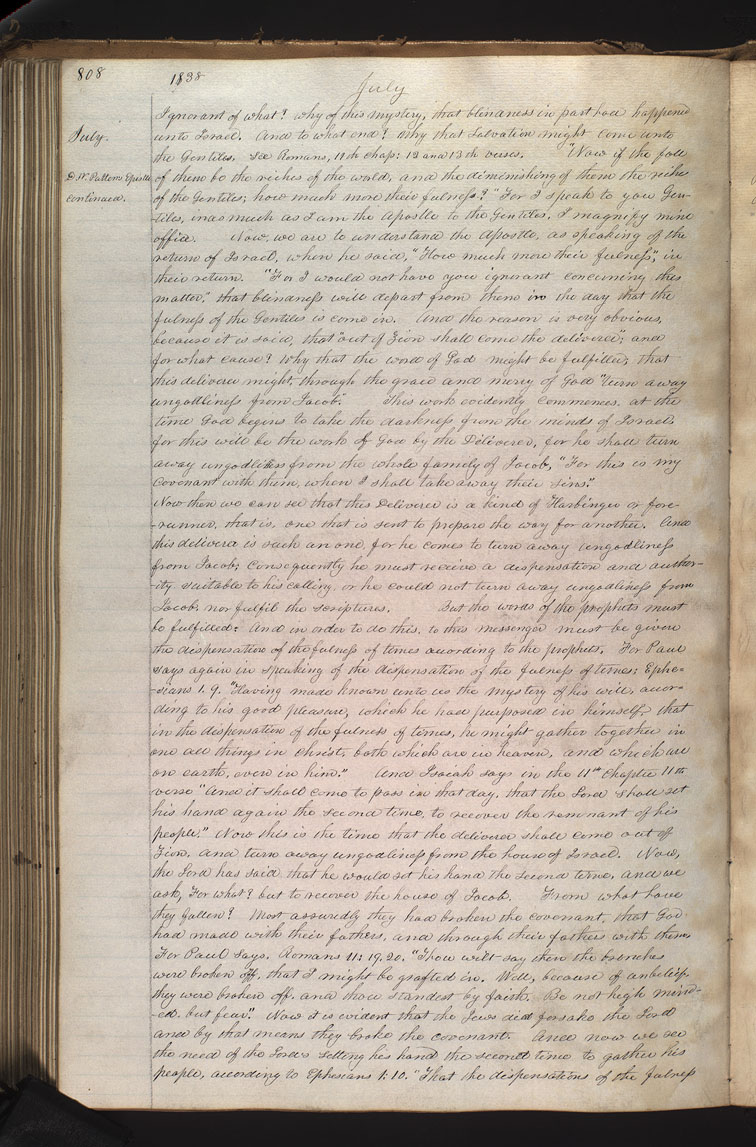 808
1838
July
July.
D. W. Pattons Epistle
Continued.
Ignorant of what? why of this mystery, that blindness in part had happened
unto Israel. And to what end? Why that Salvation might come unto
the Gentiles. See Romans, 11th chap: 12 and 13th verses. "Now if the fall
of them be the riches of the world, and the diminishing of them the riches
of the Gentiles; how much more their fulness?" "For I speak to you Gen-
tiles, inasmuch as I am the Apostle to the Gentiles, I magnify mine
office. Now, we are to understand the Apostle, as speaking of the
return of Israel, when he said, "How much more their fulness," in
their return. "For I would not have you ignorant concerning this
matter," that blindness will depart from them in the day that the
fulness of the Gentiles is come in. And the reason is very obvious,
because it is said, that "out of Zion shall come the deliverer"; and
for what cause? Why that the word of God might be fulfilled; that
this deliverer might, through the grace and mercy of God "turn away
ungodliness from Jacob." This work evidently commences at the
time God begins to take the darkness from the minds of Israel,
for this will be the work of God by the Deliverer, for he shall turn
away ungodliness from the whole family of Jacob, "For this is my
Covenant with them, when I shall take away their sins."
Now then we can see that this Deliverer is a kind of Harbinger or fore-
-runner, that is, one that is sent to prepare the way for another. And
this deliverer is such an one, for he comes to turn away ungodliness
from Jacob; Consequently he must receive a dispensation and author-
-ity suitable to his calling, or he could not turn away ungodliness from
Jacob, nor fulfil the scriptures. But the words of the prophets must
be fulfilled: And in order to do this, to this messenger must be given
the dispensation of the fulness of times according to the prophets. For Paul
says again in speaking of the dispensation of the fulness of times; Ephe-
-sians 1. 9. "Having made known unto us the mystery of his will, accor-
ding to his good pleasure, which he had purposed in himself, that
in the dispensation of the fulness of times, he might gather together in
one all things in Christ, both which are in heaven, and which are
on earth, even in him." And Isaiah says in the 11th Chapter 11th
verse "And it shall come to pass in that day, that the Lord shall set
his hand again the second time, to recover the remnant of his
people." Now this is the time that the deliverer shall come out of
Zion, and turn away ungodliness from the house of Israel. Now,
the Lord has said that he would set his hand the second time, and we
ask, For what? but to recover the house of Jacob. From what have
they fallen? Most assuredly they had broken the covenant, that God
had made with their fathers, and through their fathers with them
For Paul says. Romans 11: 19, 20. "Thou wilt say then the branches
were broken off, that I might be grafted in. Well, because of unbelief
they were broken off, and thou standest by faith. Be not high mind-
-ed, but fear." Now it is evident that the Jews did forsake the Lord
and by that means they broke the covenant. And now we see
the need of the Lords setting his hand the second time to gather his
people, according to Ephesians 1: 10. "That the dispensations of the fulness